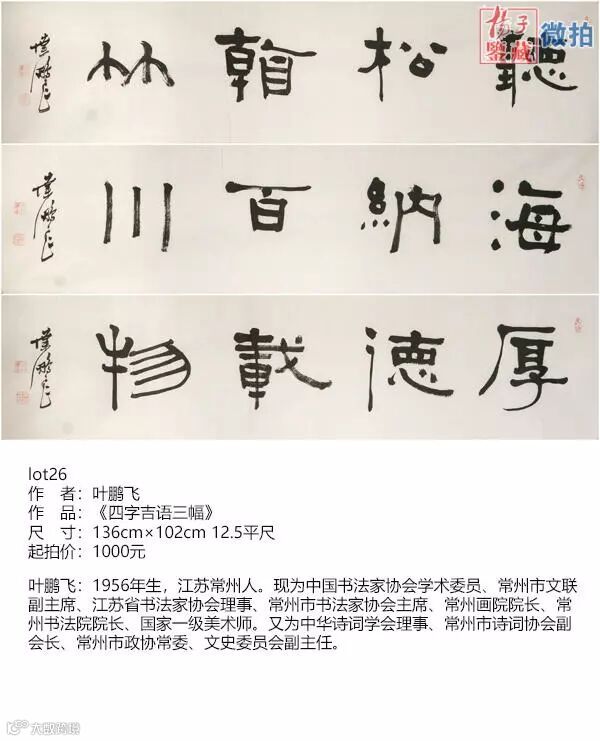 揚子
鑒藏
微拍
聽松翰林
葉鵬飛
海納百川
葉鵬飛
厚德載物
葉鵬飛
lot26
作　者：叶鹏飞
作　品：《四字吉语三幅》
尺　寸：136cm×102cm 12.5平尺
起拍价：1000元
叶鹏飞：1956年生，江苏常州人。现为中国书法家协会学术委员、常州市文联
副主席、江苏省书法家协会理事、常州市书法家协会主席、常州画院院长、常
州书法院院长、国家一级美术师。又为中华诗词学会理事、常州市诗词协会副
会长、常州市政协常委、文史委员会副主任。
大数跨境